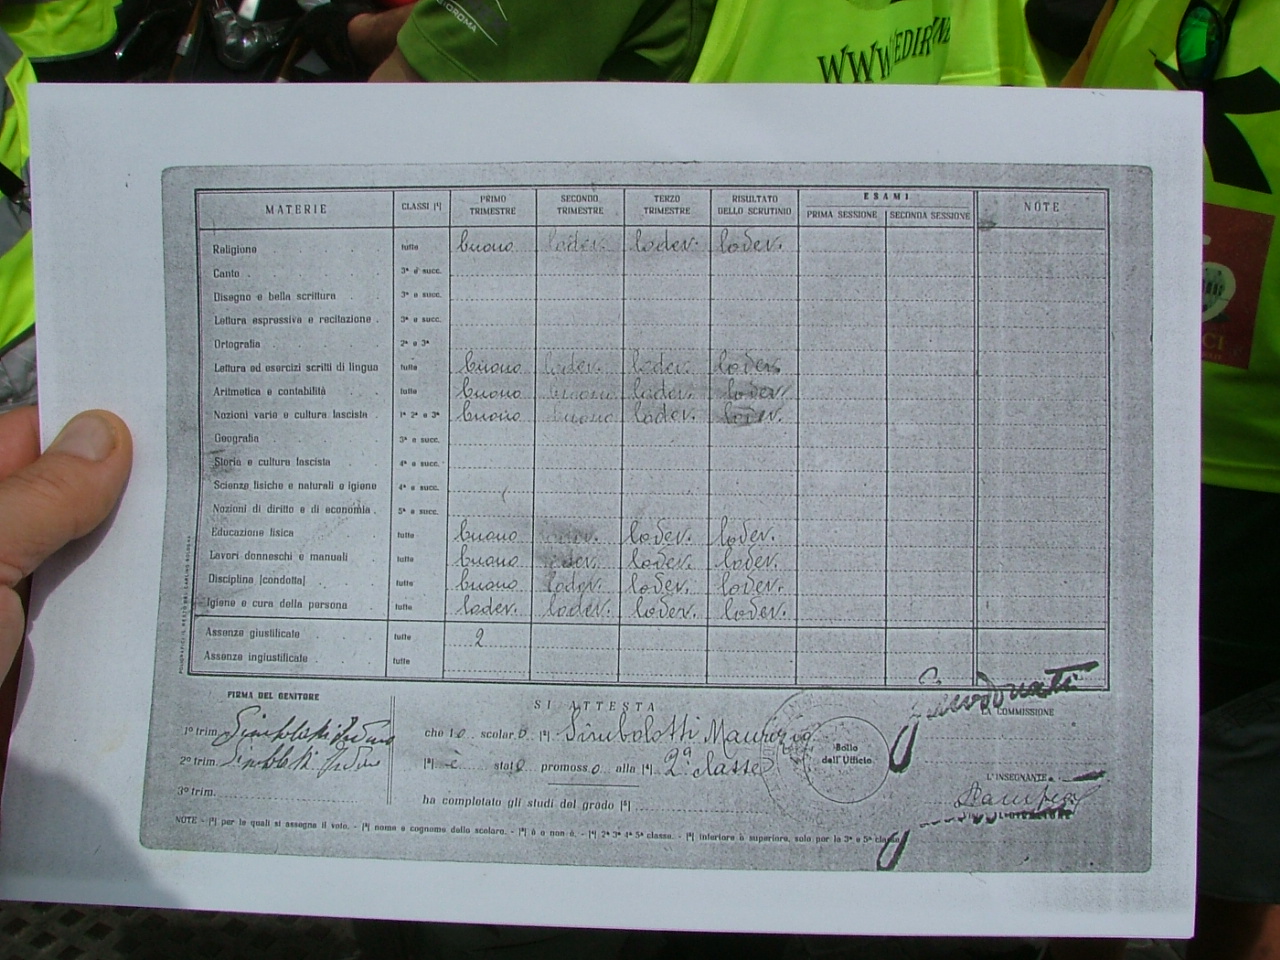 WWW
MATERIE CLASSI [¹] PRIMO TRIMESTRE SECONDO TRIMESTRE TERZO TRIMESTRE RISULTATO DELLO SCRUTINIO ESAMI PRIMA SESSIONE SECONDA SESSIONE NOTE
Religione tutte buono lodev. lodev. lodev.
Canto 3ª e succ.
Disegno e bella scrittura 3ª e succ.
Lettura espressiva e recitazione 3ª e succ.
Ortografia 2ª e 3ª
Lettura ed esercizi scritti di lingua tutte buono lodev. lodev. lodev.
Aritmetica e contabilità tutte buono buono lodev. lodev.
Nozioni varie e cultura fascista 1ª 2ª e 3ª buono buono lodev. lodev.
Geografia 3ª e succ.
Storia e cultura fascista 4ª e succ.
Scienze fisiche e naturali e igiene 4ª e succ.
Nozioni di diritto e di economia 5ª e succ.
Educazione fisica tutte buono lodev. lodev. lodev.
Lavori donneschi e manuali tutte buono lodev. lodev. lodev.
Disciplina [condotta] tutte buono lodev. lodev. lodev.
Igiene e cura della persona tutte lodev. lodev. lodev. lodev.
Assenze giustificate tutte 2
Assenze ingiustificate tutte
FIRMA DEL GENITORE
1º trim.
2º trim.
3º trim.
SI ATTESTA
che lo scolaro [²] Simbolotti Maurizio
[³] è stato promosso alla [⁴] 2ª classe
ha completato gli studi del grado [⁵]
Bollo dell'Ufficio
LA COMMISSIONE
L'INSEGNANTE
NOTE - [¹] per le quali si assegna il voto. - [²] nome e cognome dello scolaro. - [³] è o non è. - [⁴] 2ª 3ª 4ª 5ª classe. - [⁵] inferiore o superiore, solo per la 3ª e 5ª classe